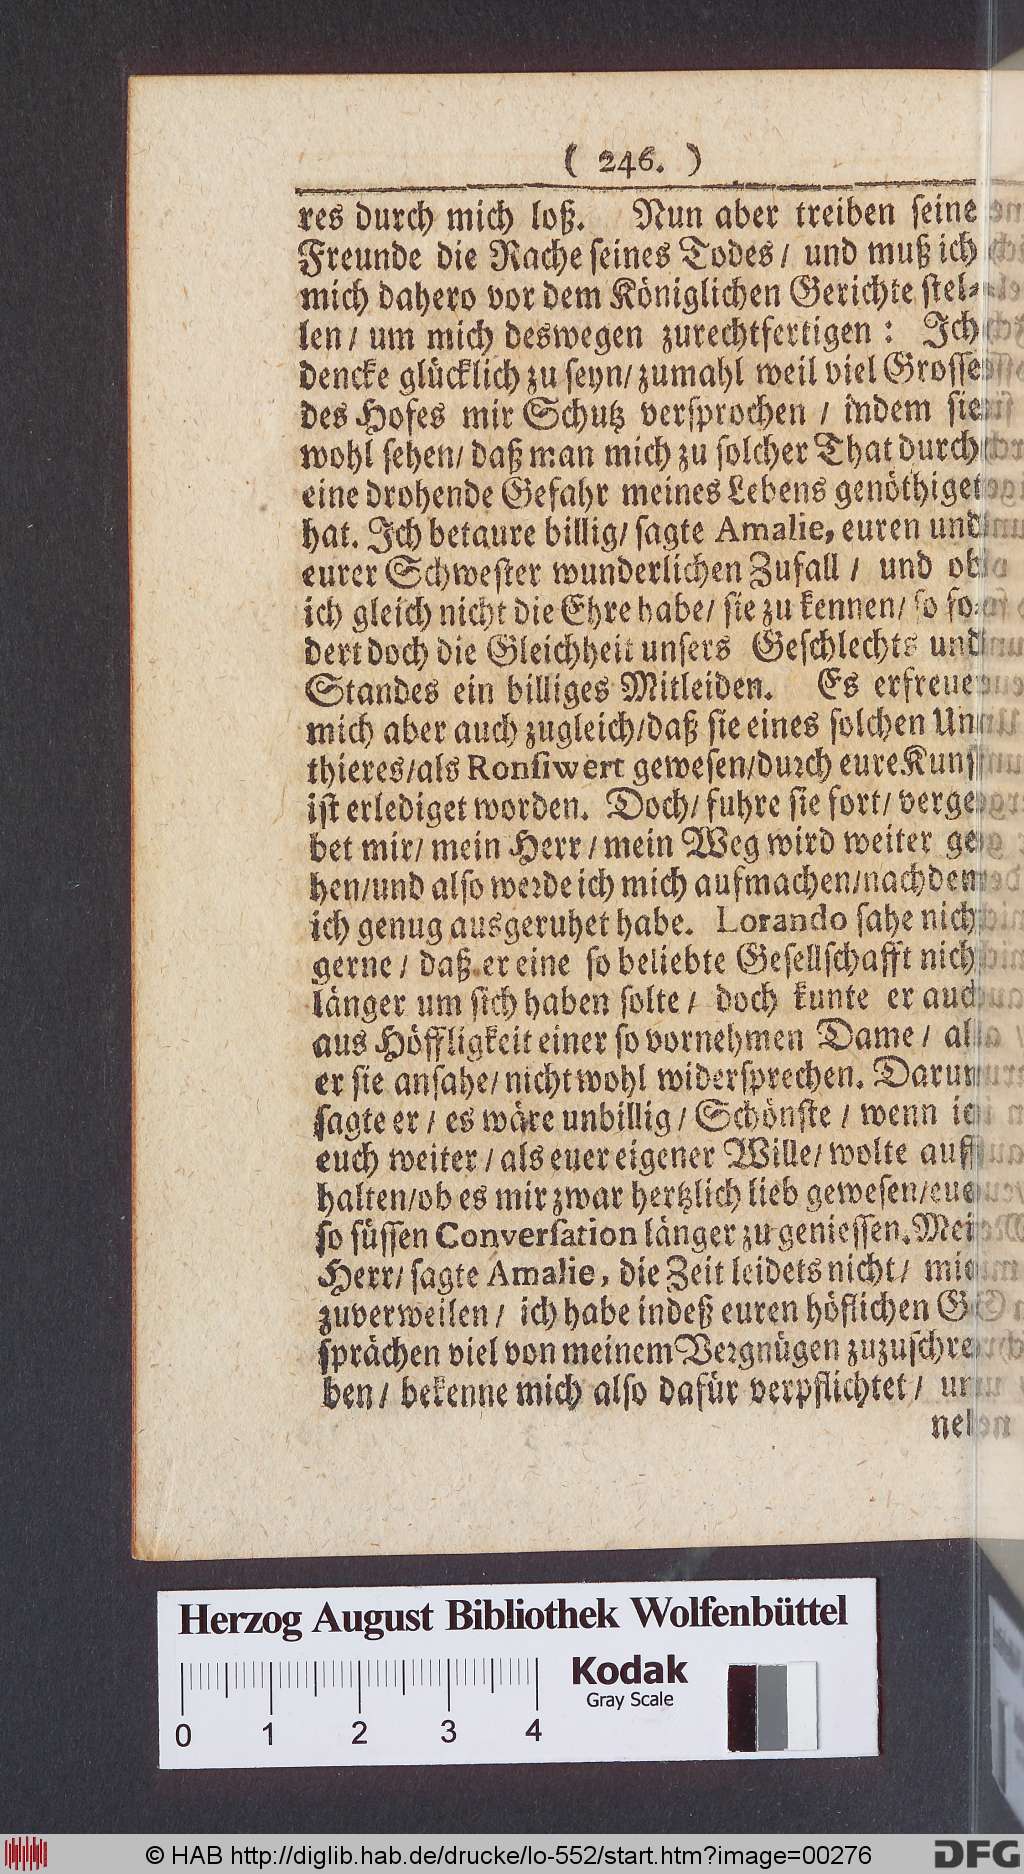 ( 246. )
res durch mich loß. Nun aber treiben seine
Freunde die Rache seines Todes / und muß ich
mich dahero vor dem Königlichen Gerichte stel-
len / um mich deswegen zurechtfertigen : Ich
dencke glücklich zu seyn / zumahl weil viel Grosse
des Hofes mir Schutz versprochen / indem sie
wohl sehen / daß man mich zu solcher That durch
eine drohende Gefahr meines Lebens genöthiget
hat. Ich betaure billig / sagte Amalie, euren und
eurer Schwester wunderlichen Zufall / und ob
ich gleich nicht die Ehre habe / sie zu kennen / so fo-
dert doch die Gleichheit unsers Geschlechts und
Standes ein billiges Mitleiden. Es erfreuet
mich aber auch zugleich / daß sie eines solchen Un-
thieres / als Ronsiwert gewesen / durch eure Kunst
ist erlediget worden. Doch / fuhre sie fort / verge-
bet mir / mein Herr / mein Weg wird weiter ge-
hen / und also werde ich mich aufmachen / nachdem
ich genug ausgeruhet habe. Lorando sahe nicht
gerne / daß er eine so beliebte Gesellschafft nicht
länger um sich haben solte / doch kunte er auch
aus Höffligkeit einer so vornehmen Dame / als
er sie ansahe / nicht wohl widersprechen. Darum
sagte er / es wäre unbillig / Schönste / wenn ich
euch weiter / als euer eigener Wille / wolte auff-
halten / ob es mir zwar hertzlich lieb gewesen /
so süssen Conversation länger zu geniessen. Mein
Herr / sagte Amalie, die Zeit leidets nicht / mich
zuverweilen / ich habe indeß euren höflichen Ge-
sprächen viel von meinem Vergnügen zuzuschrei-
ben / bekenne mich also dafür verpflichtet /
Herzog August Bibliothek Wolfenbüttel
Kodak
Gray Scale
0 1 2 3 4
© HAB http://diglib.hab.de/drucke/lo-552/start.htm?image=00276
DFG